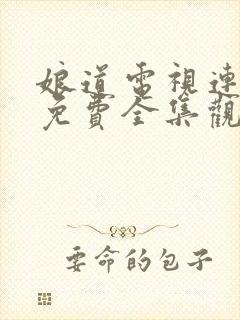 娘道電視連
免費全集觀
要命的包子